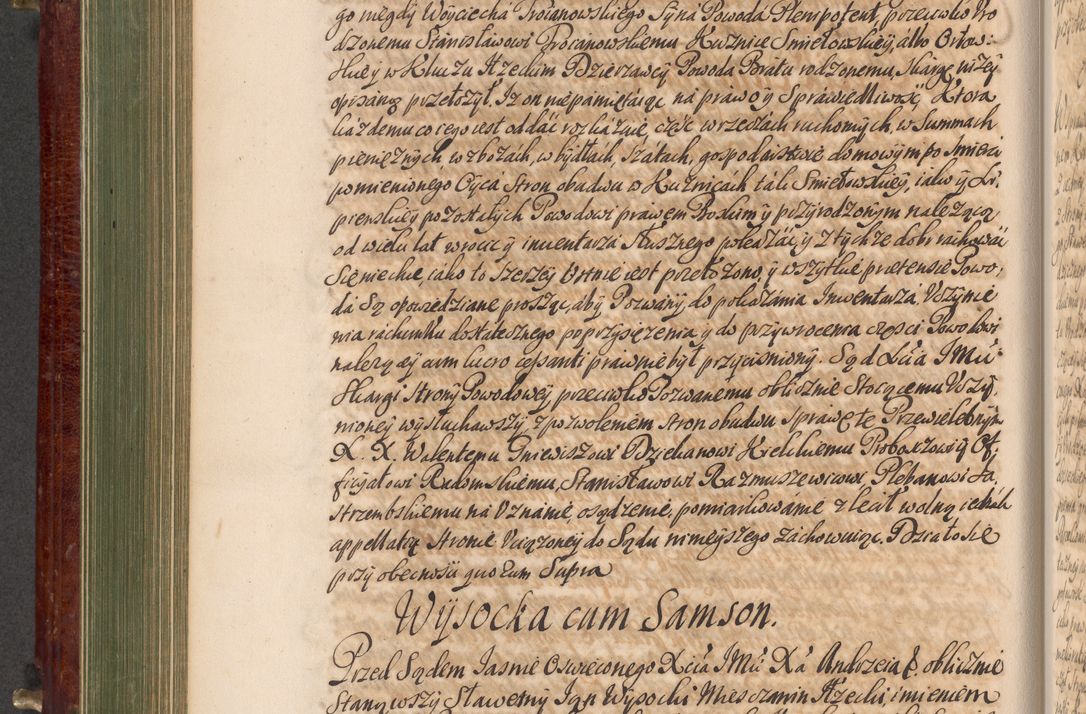 go niegdy Woyciecha Trocianowskiego Syna Powoda Plenipotent, przeciwko Ro
dzonemu Stanisławowi Trocanowskiemu Kuźnice Smietowskiey, albo Orłow:
skiey w Kluczu Iłzeckim Dzierzawcy Powoda Bratu rodzonemu, skargę niżey
opisaną przełożył, Iż on niepamiętaiąc na prawo y Sprawiedliwość, Ktora
każdemu co iego iest oddać rozkazuie, część w rzeczach ruchomych, w Summach
pieniężnych w zbożach, w bydłach, szatach, gospodarstwie domowym po śmierci
pomienionego Oyca Stron obudwu w Kuźnicach tak Smietowskiey, iako y Li,
pienskiey pozostałych Powodowi prawem Boskim y przyrodzonym należącą
od wielu lat wrocić y inwentarza słusznego pokazać, y z tychże dobr rachować
się niechce, iako to szerzey ustnie iest przełożono, y wszytkie pretensie Powo,
da są opowiedziane prosząc, aby Pozwany do pokazania Inwentarza, Uczynie
nia rachunku dostatecznego poprzysiężenia y do przywrocenia części Powodowi
należącey cum lucro cessanti prawnie był przyciśniony. Sąd Xcia IMci
skargi strony Powodowey przeciwko Pozwanemu oblicznie stoiącemu Uczy,
nioney wysłuchawszy, z pozwoleniem stron obudwu sprawę tę Przewielebnym
X. X. Walentemu Gniewiszowi Dziekanowi Kielckiemu Proboszczowi y Of,
ficyałowi Radomskiemu, Stanisławowi Razmuszewicowi, Plebanowi Ja,
strzembskiemu na Uznanie, osądzenie, pomiarkowanie zlecił wolną iednak
appellatią stronie Uciążoney do Sądu ninieyszego zachowuiąc. Działo się
przy obecności quorum Supra
Wysocka cum Samson.
Przed Sądem Jasnie Oswieconego Xcia IMci Xa Andrzeia &. oblicznie
Stanąwszy Sławetny Jan Wysocki Mieszczanin Iłzecki imieniem